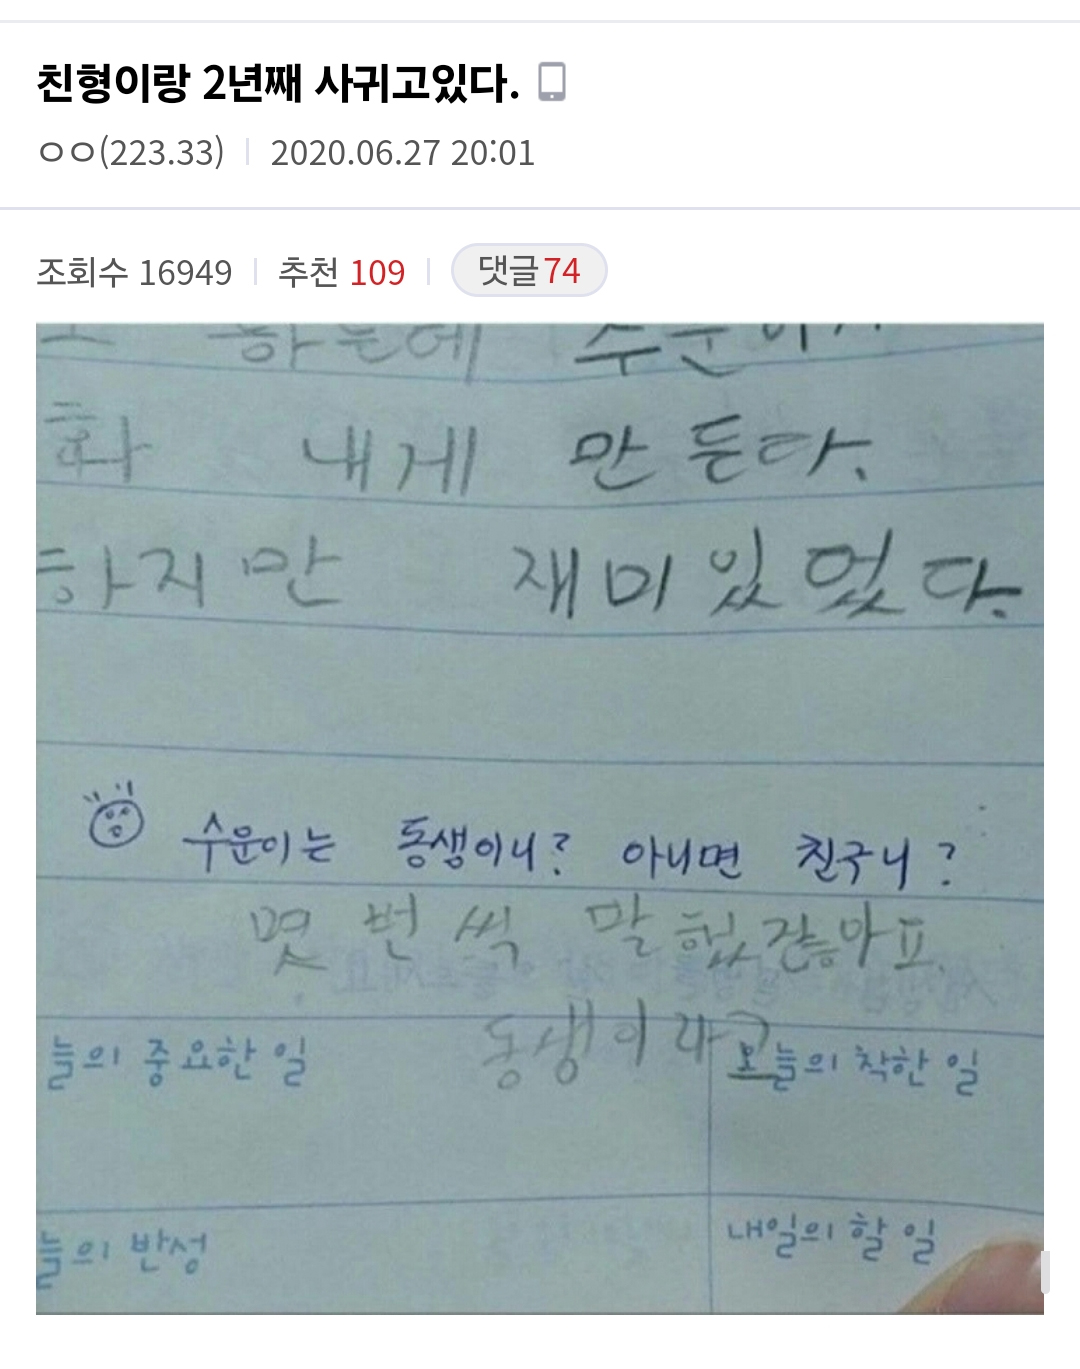 친형이랑 2년째 사귀고있다.
ㅇㅇ(223.33) 2020.06.27 20:01
조회수 16949 추천 109 댓글 74
하는데 수운이가
화 내게 만든다.
하지만 재미있었다.
수운이는 동생이니? 아니면 친구니?
몇 번 씩 말 했잖아요.
동생이라고
늘의 중요한 일 오늘의 착한 일
늘의 반성 내일의 할 일